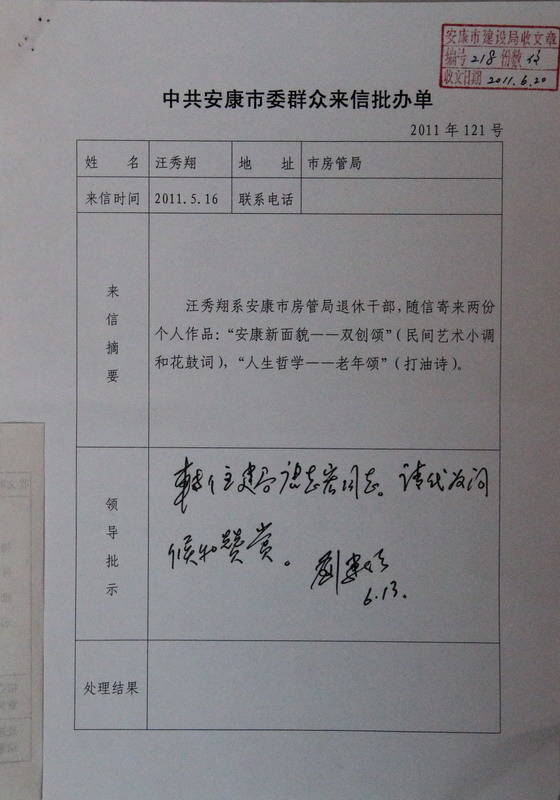 安康市建设局收文章
编号 218 份数
收文日期 2011.6.20
中共安康市委群众来信批办单
2011 年 121 号
姓 名 汪秀翔 地 址 市房管局
来信时间 2011.5.16 联系电话
来信摘要
汪秀翔系安康市房管局退休干部,随信寄来两份
个人作品:“安康新面貌——双创颂”(民间艺术小调
和花鼓词),“人生哲学——老年颂”(打油诗)。
领导批示
转住建局 志 同志。请代为问
候和赞赏。
刘建
6.13.
处理结果